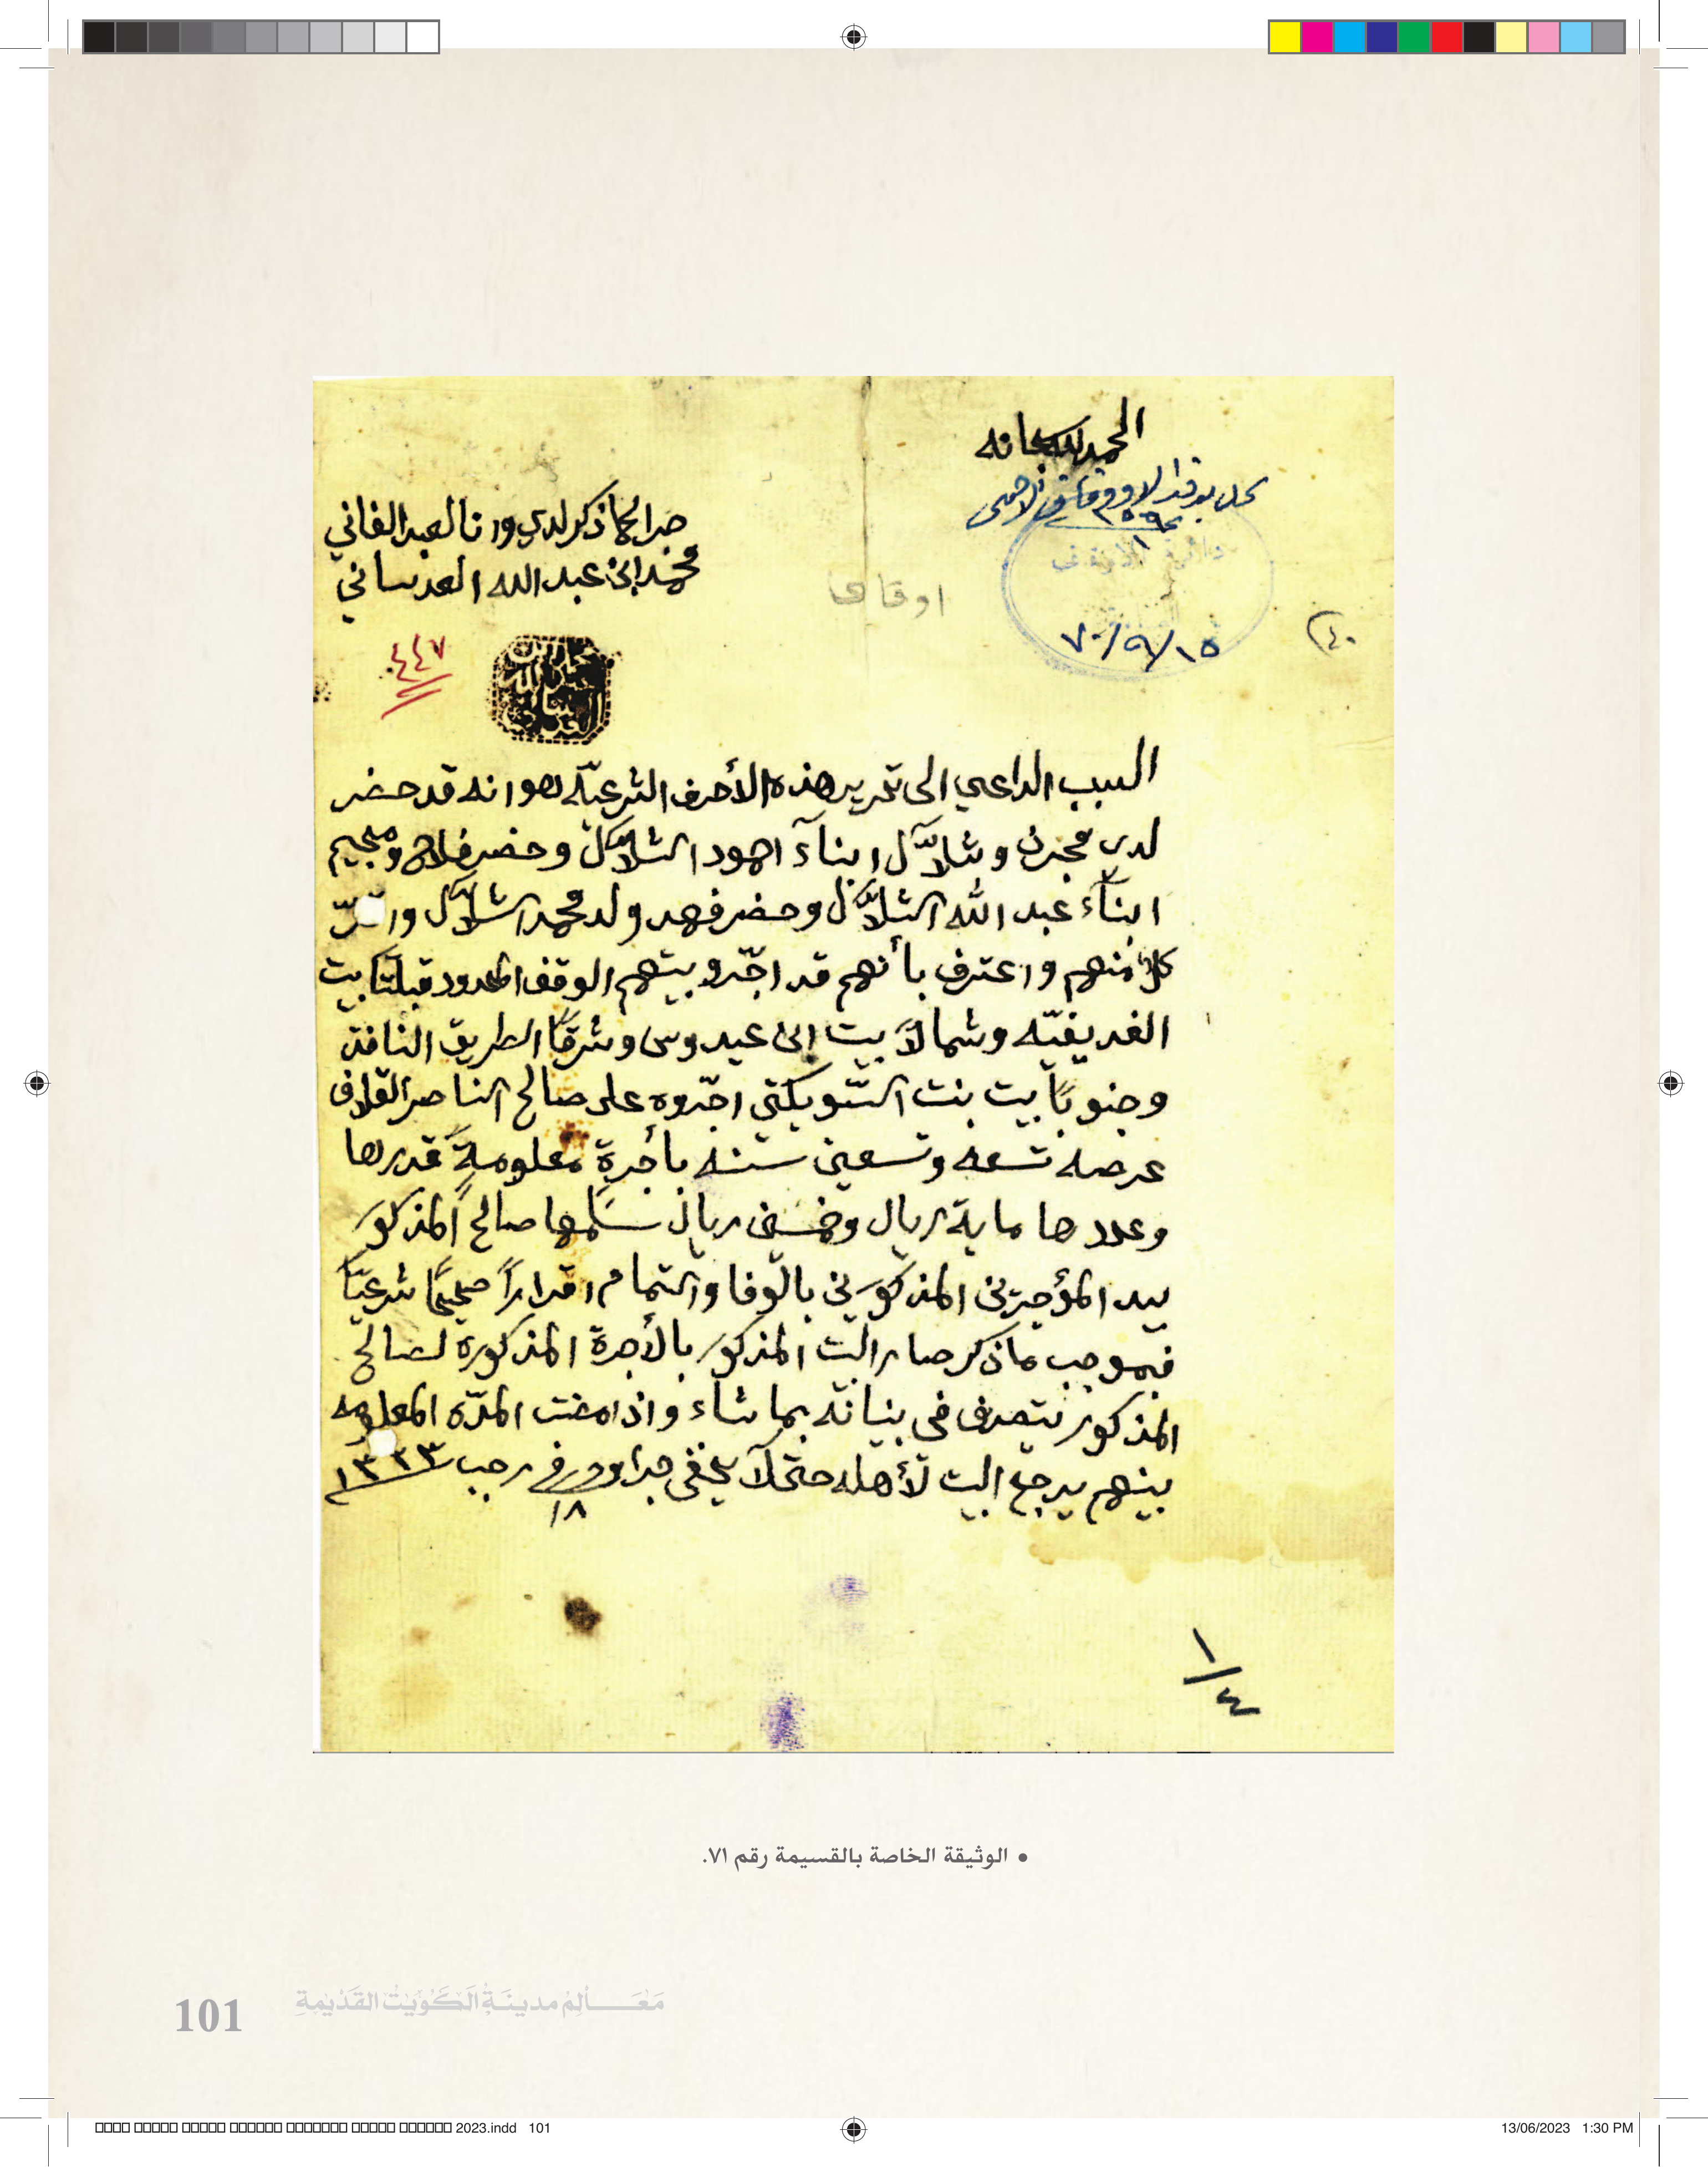 الحمد لله سبحانه
جرا لما ذكر لدي وانا العبد الفاني
محمد ابن عبد الله العدساني
اوقاف
٧٠/٩/١٥
٤٠
٤٤٧
السبب الداعي الى تحرير هذه الأحرف الشرعيّه هو انه قد حضر
لدي محجرن وشلاّل ابنآء احمود الشلاّل وحضر فلاح و
ابنآء عبد الله الشلاّل وحضر فهد ولد محمد الشلاّل و
كلاً منهم واعترف بأنهم قد اجّرو بيتهم الوقف المحدود قبلتاً بيت
الغديفيّه وشمالاً بيت ابن عيدروس وشرقاً الطريق النافذ
وجنوباً بيت بنت الشويكتي اجّروه على صالح الناصر القلاف
عرصه تسعه وتسعين سنه بأجرةٍ معلومةً قدرها
وعددها ماية ريال وخمسين ريال سلّمها صالح المذكور
بيد المؤجرين المذكورين بالوفا والتمام اقراراً صحيحاً شرعيّاً
فبموجب ما ذكر صار البيت المذكور بالأجرة المذكورة لصالح
المذكور يتصرف في بنيانه بما شاء واذا مضت المدّه المعلومه
بينهم يرجع البيت لأهله حتى لا يخفى جرا وحرر في رجب ١٣٣٣
١٨
١/٤
• الوثيقة الخاصة بالقسيمة رقم ٧١.
101 مَعَـــالِمُ مدينَةِ الكُوَيْتِ القَدِيْمَةِ
2023.indd 101
13/06/2023 1:30 PM